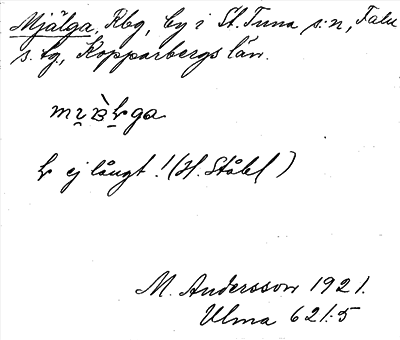 Mjälga, Rbg, by i St. Tuna s:n, Falu
s. tg, Kopparbergs län.
ej långt! (H. Ståbl)
M. Andersson 1921.
Ulma 621:5